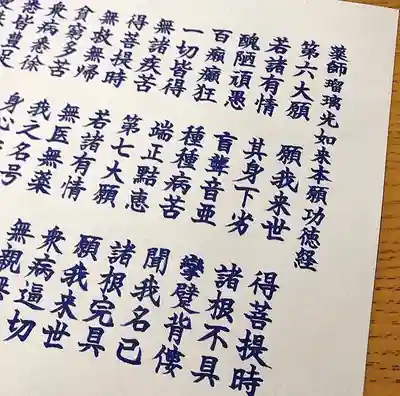 薬師瑠璃光如来本願功徳経
第六大願 願我来世 得菩提時
若諸有情 其身下劣 諸根不具
醜陋頑愚 盲聾音亜 攣躄背僂
百癩癲狂 種種病苦 聞我名已
一切皆得 端正黠恵 諸根完具
無諸疾苦 第七大願 願我来世
得菩提時 若諸有情 衆病逼切
無救無帰 無医無薬 無親
貧窮多苦 我之名号
衆病悉徐 身心
皆豊足